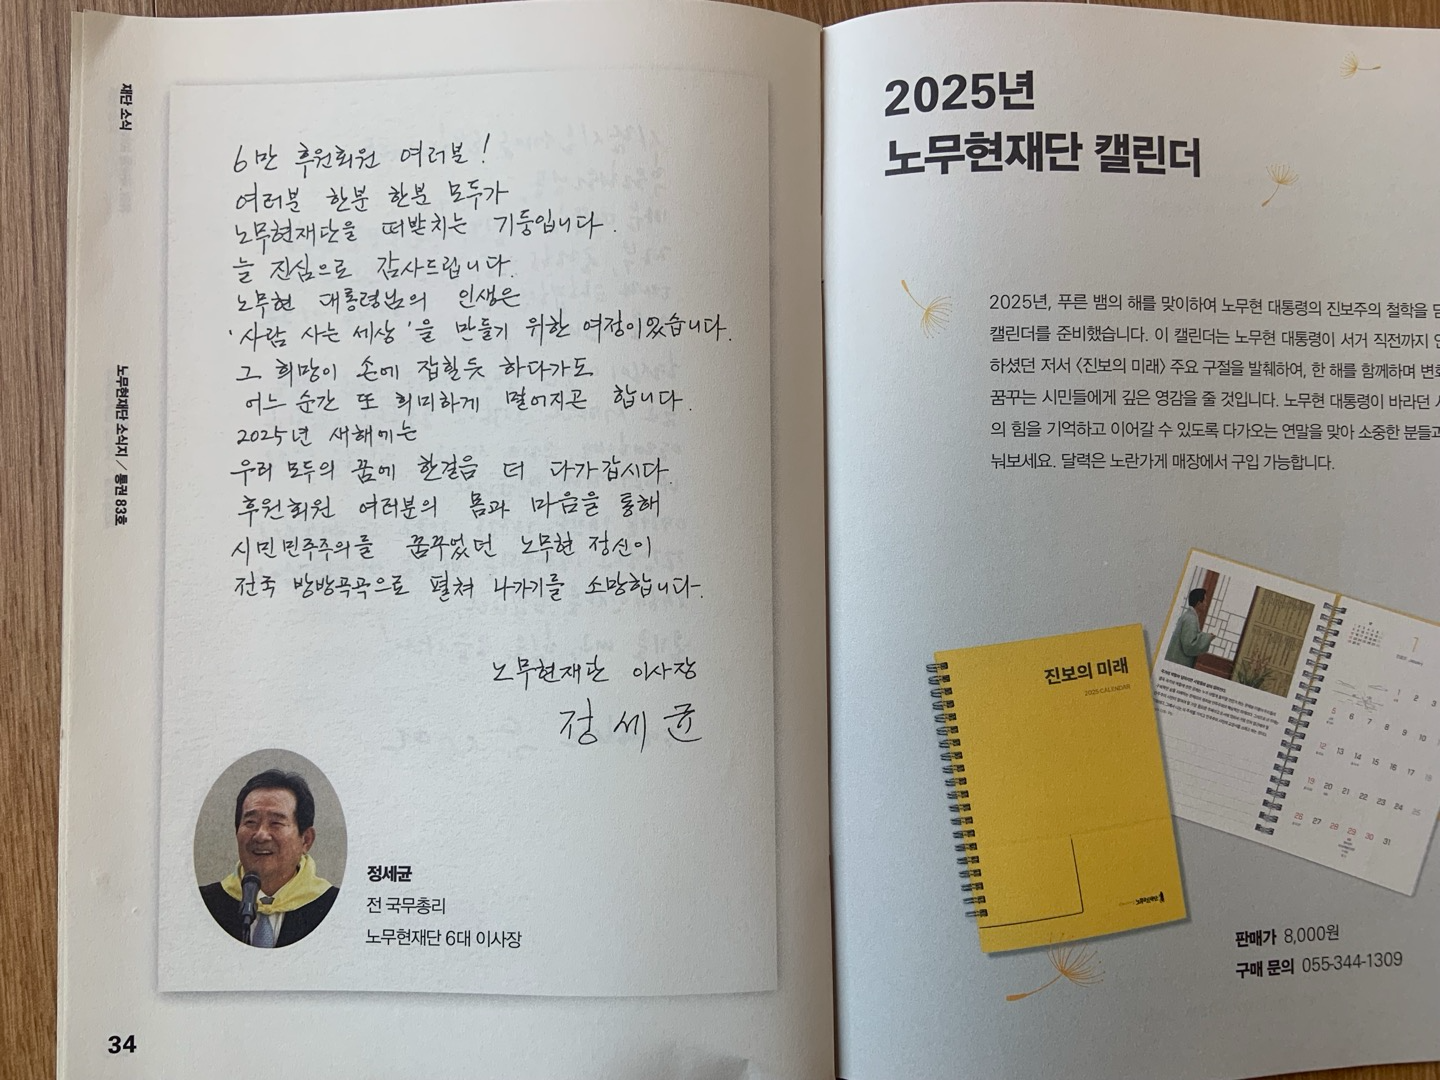 재단 소식
노무현재단 소식지 / 통권 83호
6만 후원회원 여러분!
여러분 한분 한분 모두가
노무현재단을 떠받치는 기둥입니다.
늘 진심으로 감사드립니다.
노무현 대통령님의 인생은
'사람 사는 세상'을 만들기 위한 여정이었습니다.
그 희망이 손에 잡힐듯 하다가도
어느 순간 또 희미하게 멀어지곤 합니다.
2025년 새해에는
우리 모두의 꿈에 한걸음 더 다가갑시다.
후원회원 여러분의 몸과 마음을 통해
시민민주주의를 꿈꾸었던 노무현 정신이
전국 방방곡곡으로 펼쳐 나가기를 소망합니다.
노무현재단 이사장
정세균
정세균
전 국무총리
노무현재단 6대 이사장
34
2025년
노무현재단 캘린더
2025년, 푸른 뱀의 해를 맞이하여 노무현 대통령의 진보주의 철학을
캘린더를 준비했습니다. 이 캘린더는 노무현 대통령이 서거 직전까지
하셨던 저서 〈진보의 미래〉 주요 구절을 발췌하여, 한 해를 함께하며
꿈꾸는 시민들에게 깊은 영감을 줄 것입니다. 노무현 대통령이 바라던
의 힘을 기억하고 이어갈 수 있도록 다가오는 연말을 맞아 소중한 분들과
눠보세요. 달력은 노란가게 매장에서 구입 가능합니다.
진보의 미래
2025 CALENDAR
노무현재단
1
1 2 3
5 6 7 8 9 10
12 13 14 15 16 17 18
19 20 21 22 23 24 25
26 27 28 29 30 31
판매가 8,000원
구매 문의 055-344-1309